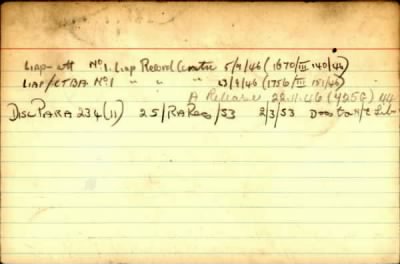 Liap- att No 1. Liap Record Centre 5/9/46 (1670/III 140/46)
LIAP/CTBA No 1 " " " 23/9/46 (1756/III 151/46)
A Release 22.11.46 (425G) 44
DISC PARA 234(11) 25/RA Rec/53 2/3/53